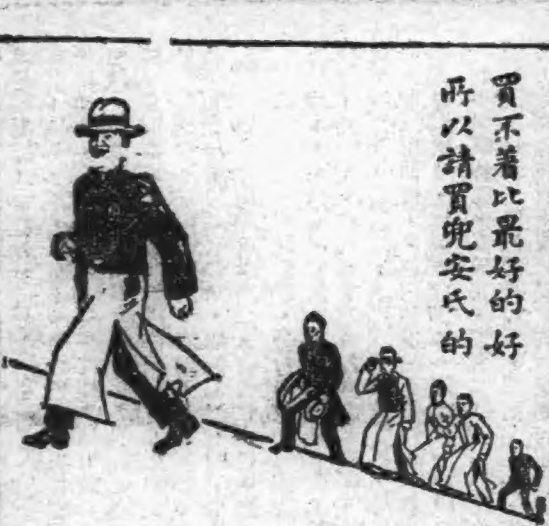 買不着比最好的好
所以請買兜安氏的